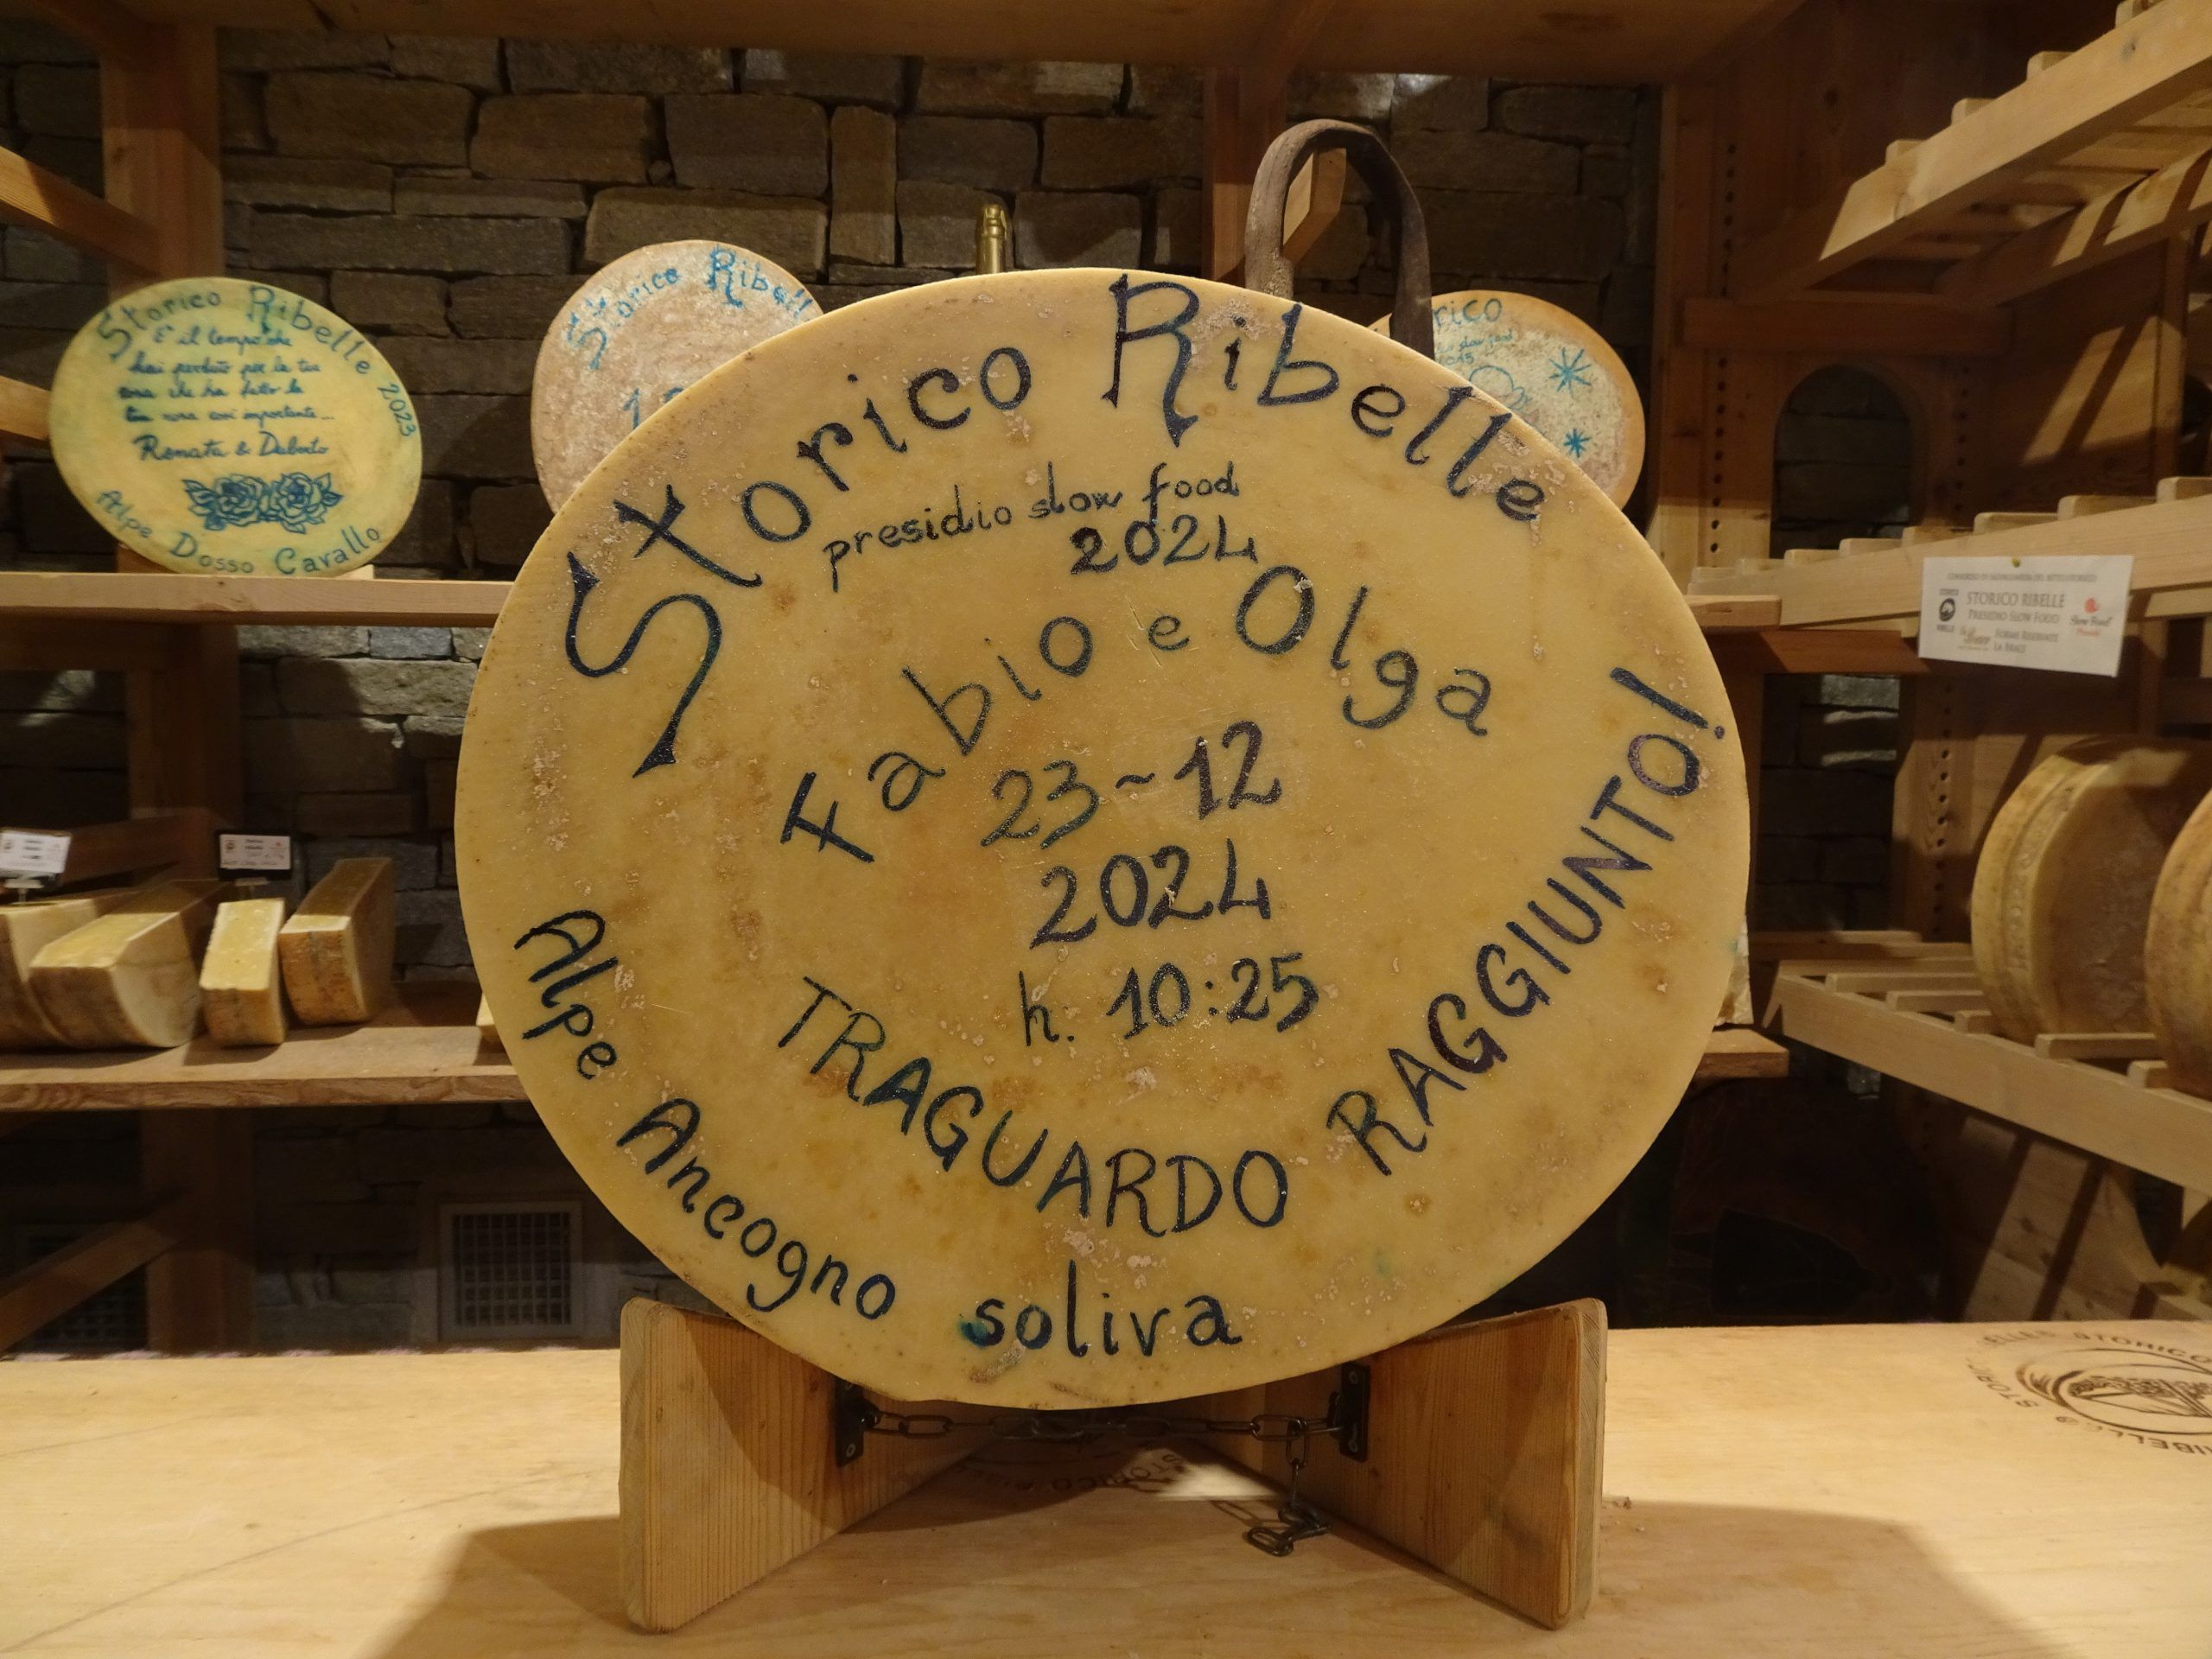 Storico Ribelle
presidio slow food
2024
Fabio e Olga
23~12
2024
h. 10:25
TRAGUARDO RAGGIUNTO!
Alpe Ancogno soliva
Storico Ribelle 2023
E' il tempo che
hai perduto per la tua
rosa che ha fatto la
tua rosa così importante...
Renata &
Alpe Dosso Cavallo
Storico Ribell
rico
slow food
STORICO RIBELLE
PRESIDIO SLOW FOOD
FORME RISERVATE
Slow Food
STORICO